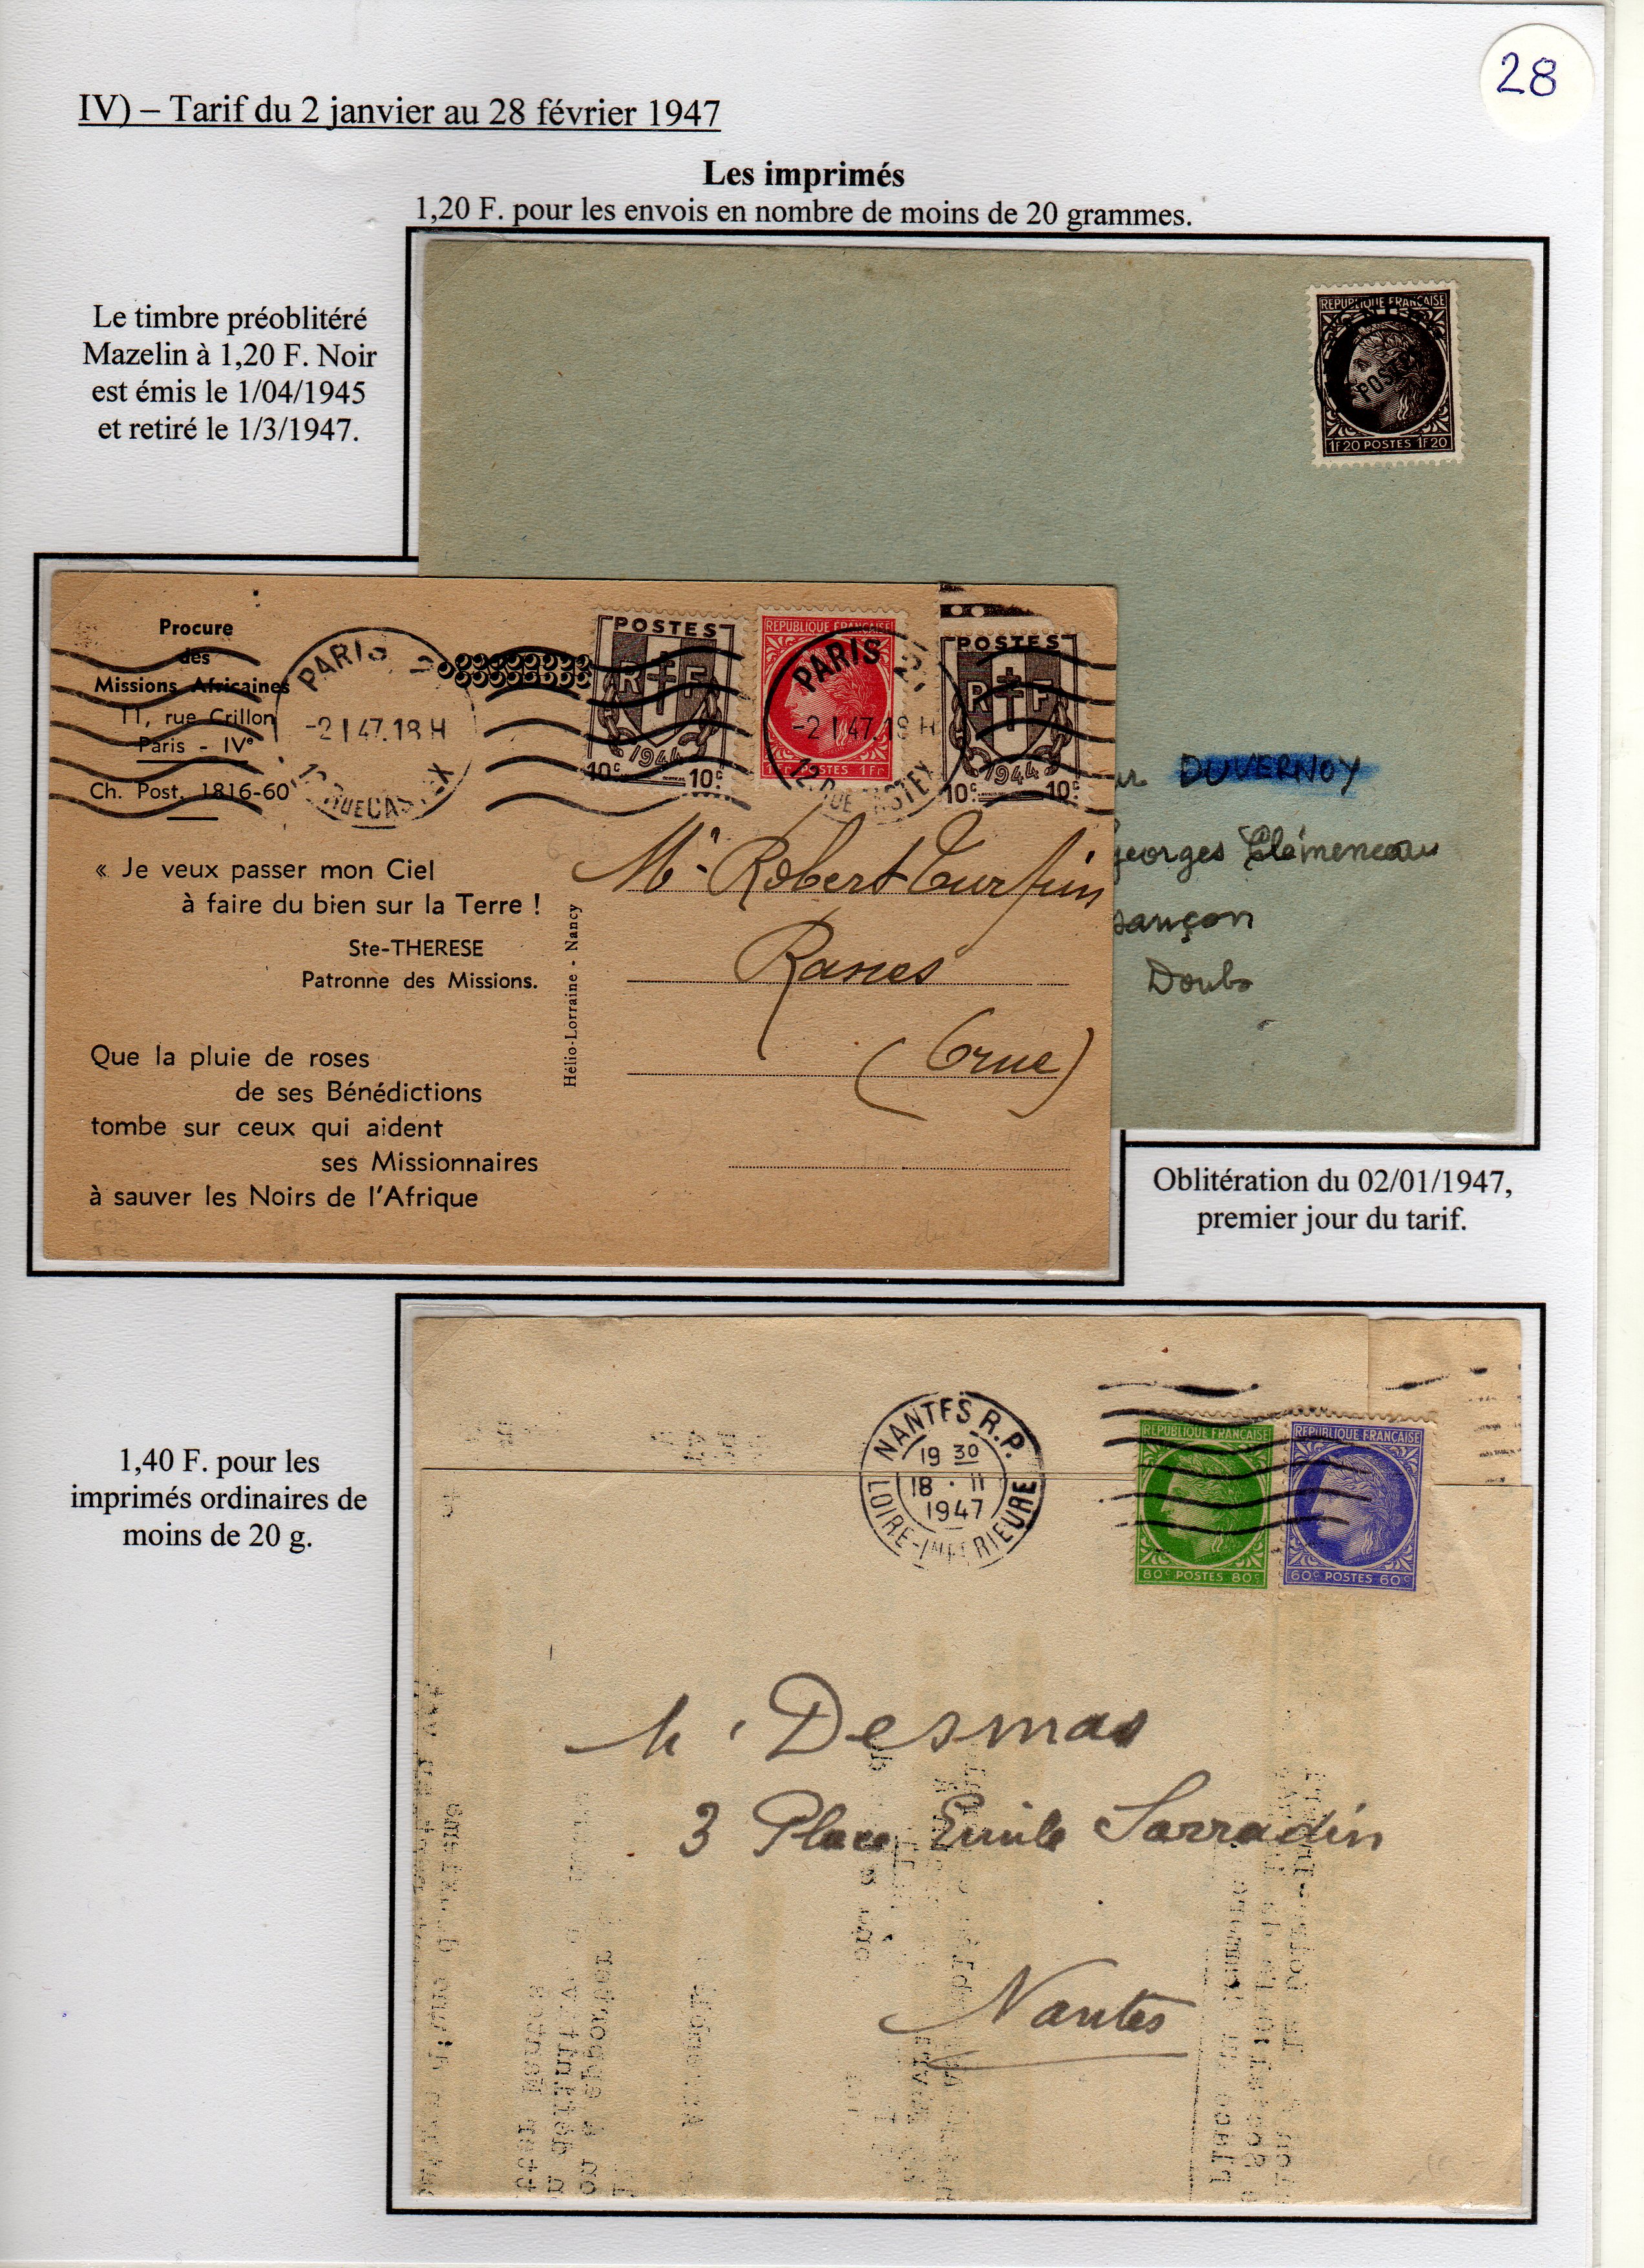 28
IV) – Tarif du 2 janvier au 28 février 1947
Les imprimés
1,20 F. pour les envois en nombre de moins de 20 grammes.
Le timbre préoblitéré
Mazelin à 1,20 F. Noir
est émis le 1/04/1945
et retiré le 1/3/1947.
REPUBLIQUE FRANÇAISE
POSTES
1F20 POSTES 1F20
DUVERNOY
Georges Clémenceau
Doubs
Procure
des
Missions Africaines
11, rue Crillon
Paris - IVe
Ch. Post. 1816-60
PARIS
-2 I 47.18 H
12 RUE CASTEX
POSTES
RF
1944
10c. 10c.
REPUBLIQUE FRANÇAISE
1Fr POSTES 1Fr
PARIS
-2 I 47.18 H
12 RUE CASTEX
POSTES
RF
1944
10c. 10c.
« Je veux passer mon Ciel
à faire du bien sur la Terre !
Ste-THERESE
Patronne des Missions.
Que la pluie de roses
de ses Bénédictions
tombe sur ceux qui aident
ses Missionnaires
à sauver les Noirs de l'Afrique
Hélio-Lorraine - Nancy
Mr Robert Turfin
Ranes
(Orne)
Oblitération du 02/01/1947,
premier jour du tarif.
1,40 F. pour les
imprimés ordinaires de
moins de 20 g.
NANTES R.P.
19 30
18 · II
1947
LOIRE-INFERIEURE
REPUBLIQUE FRANÇAISE
80c POSTES 80c
REPUBLIQUE FRANÇAISE
60c POSTES 60c
M. Desmas
3 Place Emile Sarradin
Nantes